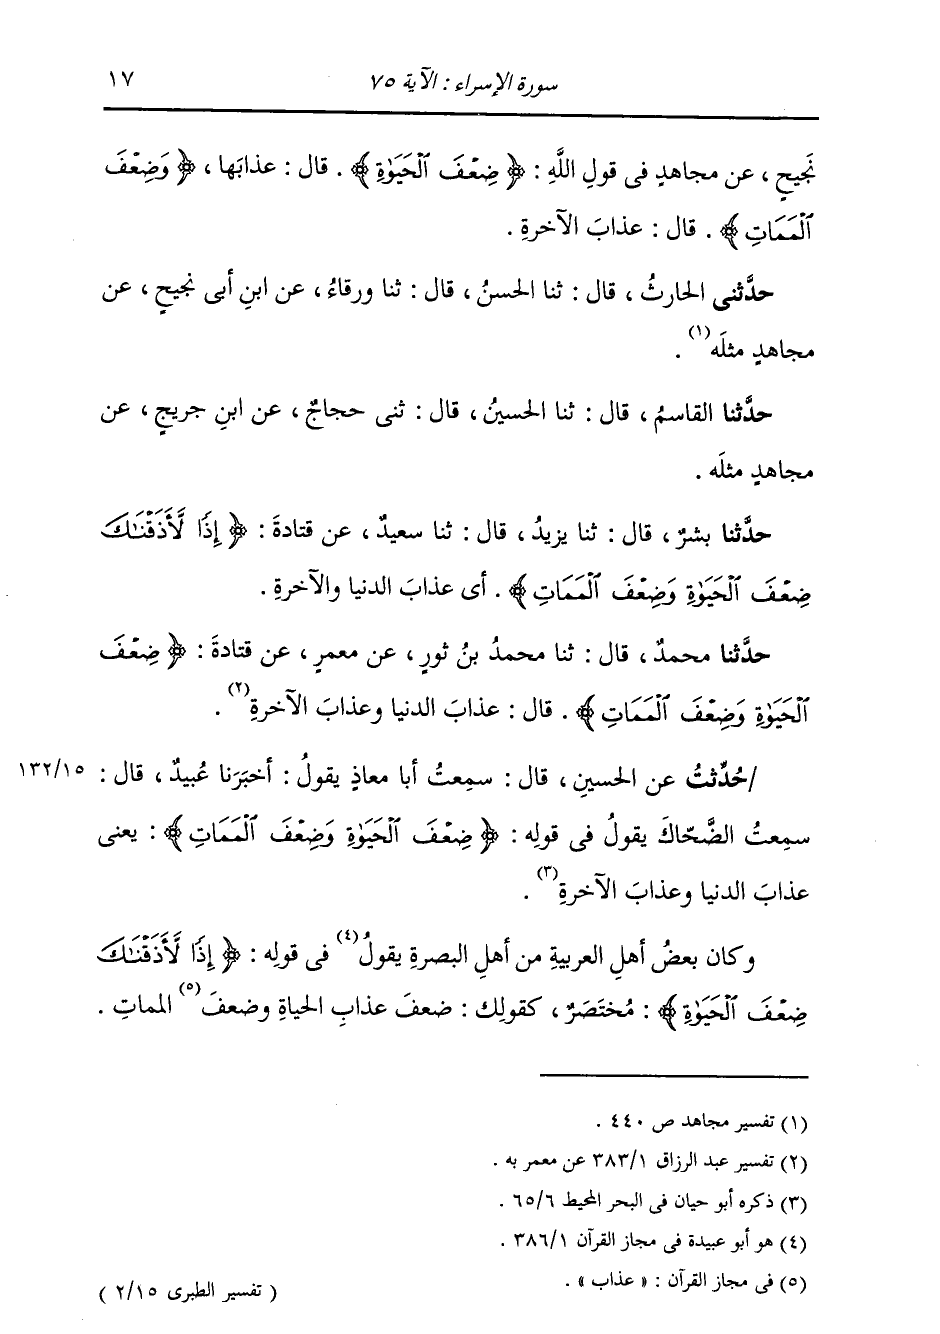 سورة الإسراء : الآية ٧٥
١٧
نَجيحٍ ، عن مجاهدٍ فى قولِ اللَّهِ : ﴿ ضِعْفَ ٱلْحَيَوٰةِ ﴾ . قال : عذابَها ، ﴿ وَضِعْفَ
ٱلْمَمَاتِ ﴾ . قال : عذابَ الآخرةِ .
حدَّثنى الحارثُ ، قال : ثنا الحسنُ ، قال : ثنا ورقاءُ ، عن ابنِ أبى نجيحٍ ، عن
مجاهدٍ مثلَه(١) .
حدَّثنا القاسمُ ، قال : ثنا الحسينُ ، قال : ثنى حجاجٌ ، عن ابنِ جريجٍ ، عن
مجاهدٍ مثلَه .
حدَّثنا بشرٌ ، قال : ثنا يزيدُ ، قال : ثنا سعيدٌ ، عن قتادةَ : ﴿ إِذًا لَّأَذَقْنَـٰكَ
ضِعْفَ ٱلْحَيَوٰةِ وَضِعْفَ ٱلْمَمَاتِ ﴾ . أى عذابَ الدنيا والآخرةِ .
حدَّثنا محمدٌ ، قال : ثنا محمدُ بنُ ثورٍ ، عن معمرٍ ، عن قتادةَ : ﴿ ضِعْفَ
ٱلْحَيَوٰةِ وَضِعْفَ ٱلْمَمَاتِ ﴾ . قال : عذابَ الدنيا وعذابَ الآخرةِ(٢) .
/حُدِّثتُ عن الحسينِ ، قال : سمِعتُ أبا معاذٍ يقولُ : أخبَرَنا عُبيدٌ ، قال : ١٣٢/١٥
سمِعتُ الضَّحّاكَ يقولُ فى قولِه : ﴿ ضِعْفَ ٱلْحَيَوٰةِ وَضِعْفَ ٱلْمَمَاتِ ﴾ : يعنى
عذابَ الدنيا وعذابَ الآخرةِ(٣) .
وكان بعضُ أهلِ العربيةِ من أهلِ البصرةِ يقولُ(٤) فى قولِه : ﴿ إِذًا لَّأَذَقْنَـٰكَ
ضِعْفَ ٱلْحَيَوٰةِ ﴾ : مُختَصَرٌ ، كقولِك : ضعفَ عذابِ الحياةِ وضعفَ(٥) المماتِ .
(١) تفسير مجاهد ص ٤٤٠ .
(٢) تفسير عبد الرزاق ٣٨٣/١ عن معمر به .
(٣) ذكره أبو حيان فى البحر المحيط ٦٥/٦ .
(٤) هو أبو عبيدة فى مجاز القرآن ٣٨٦/١ .
(٥) فى مجاز القرآن : « عذاب » .
( تفسير الطبرى ٢/١٥ )